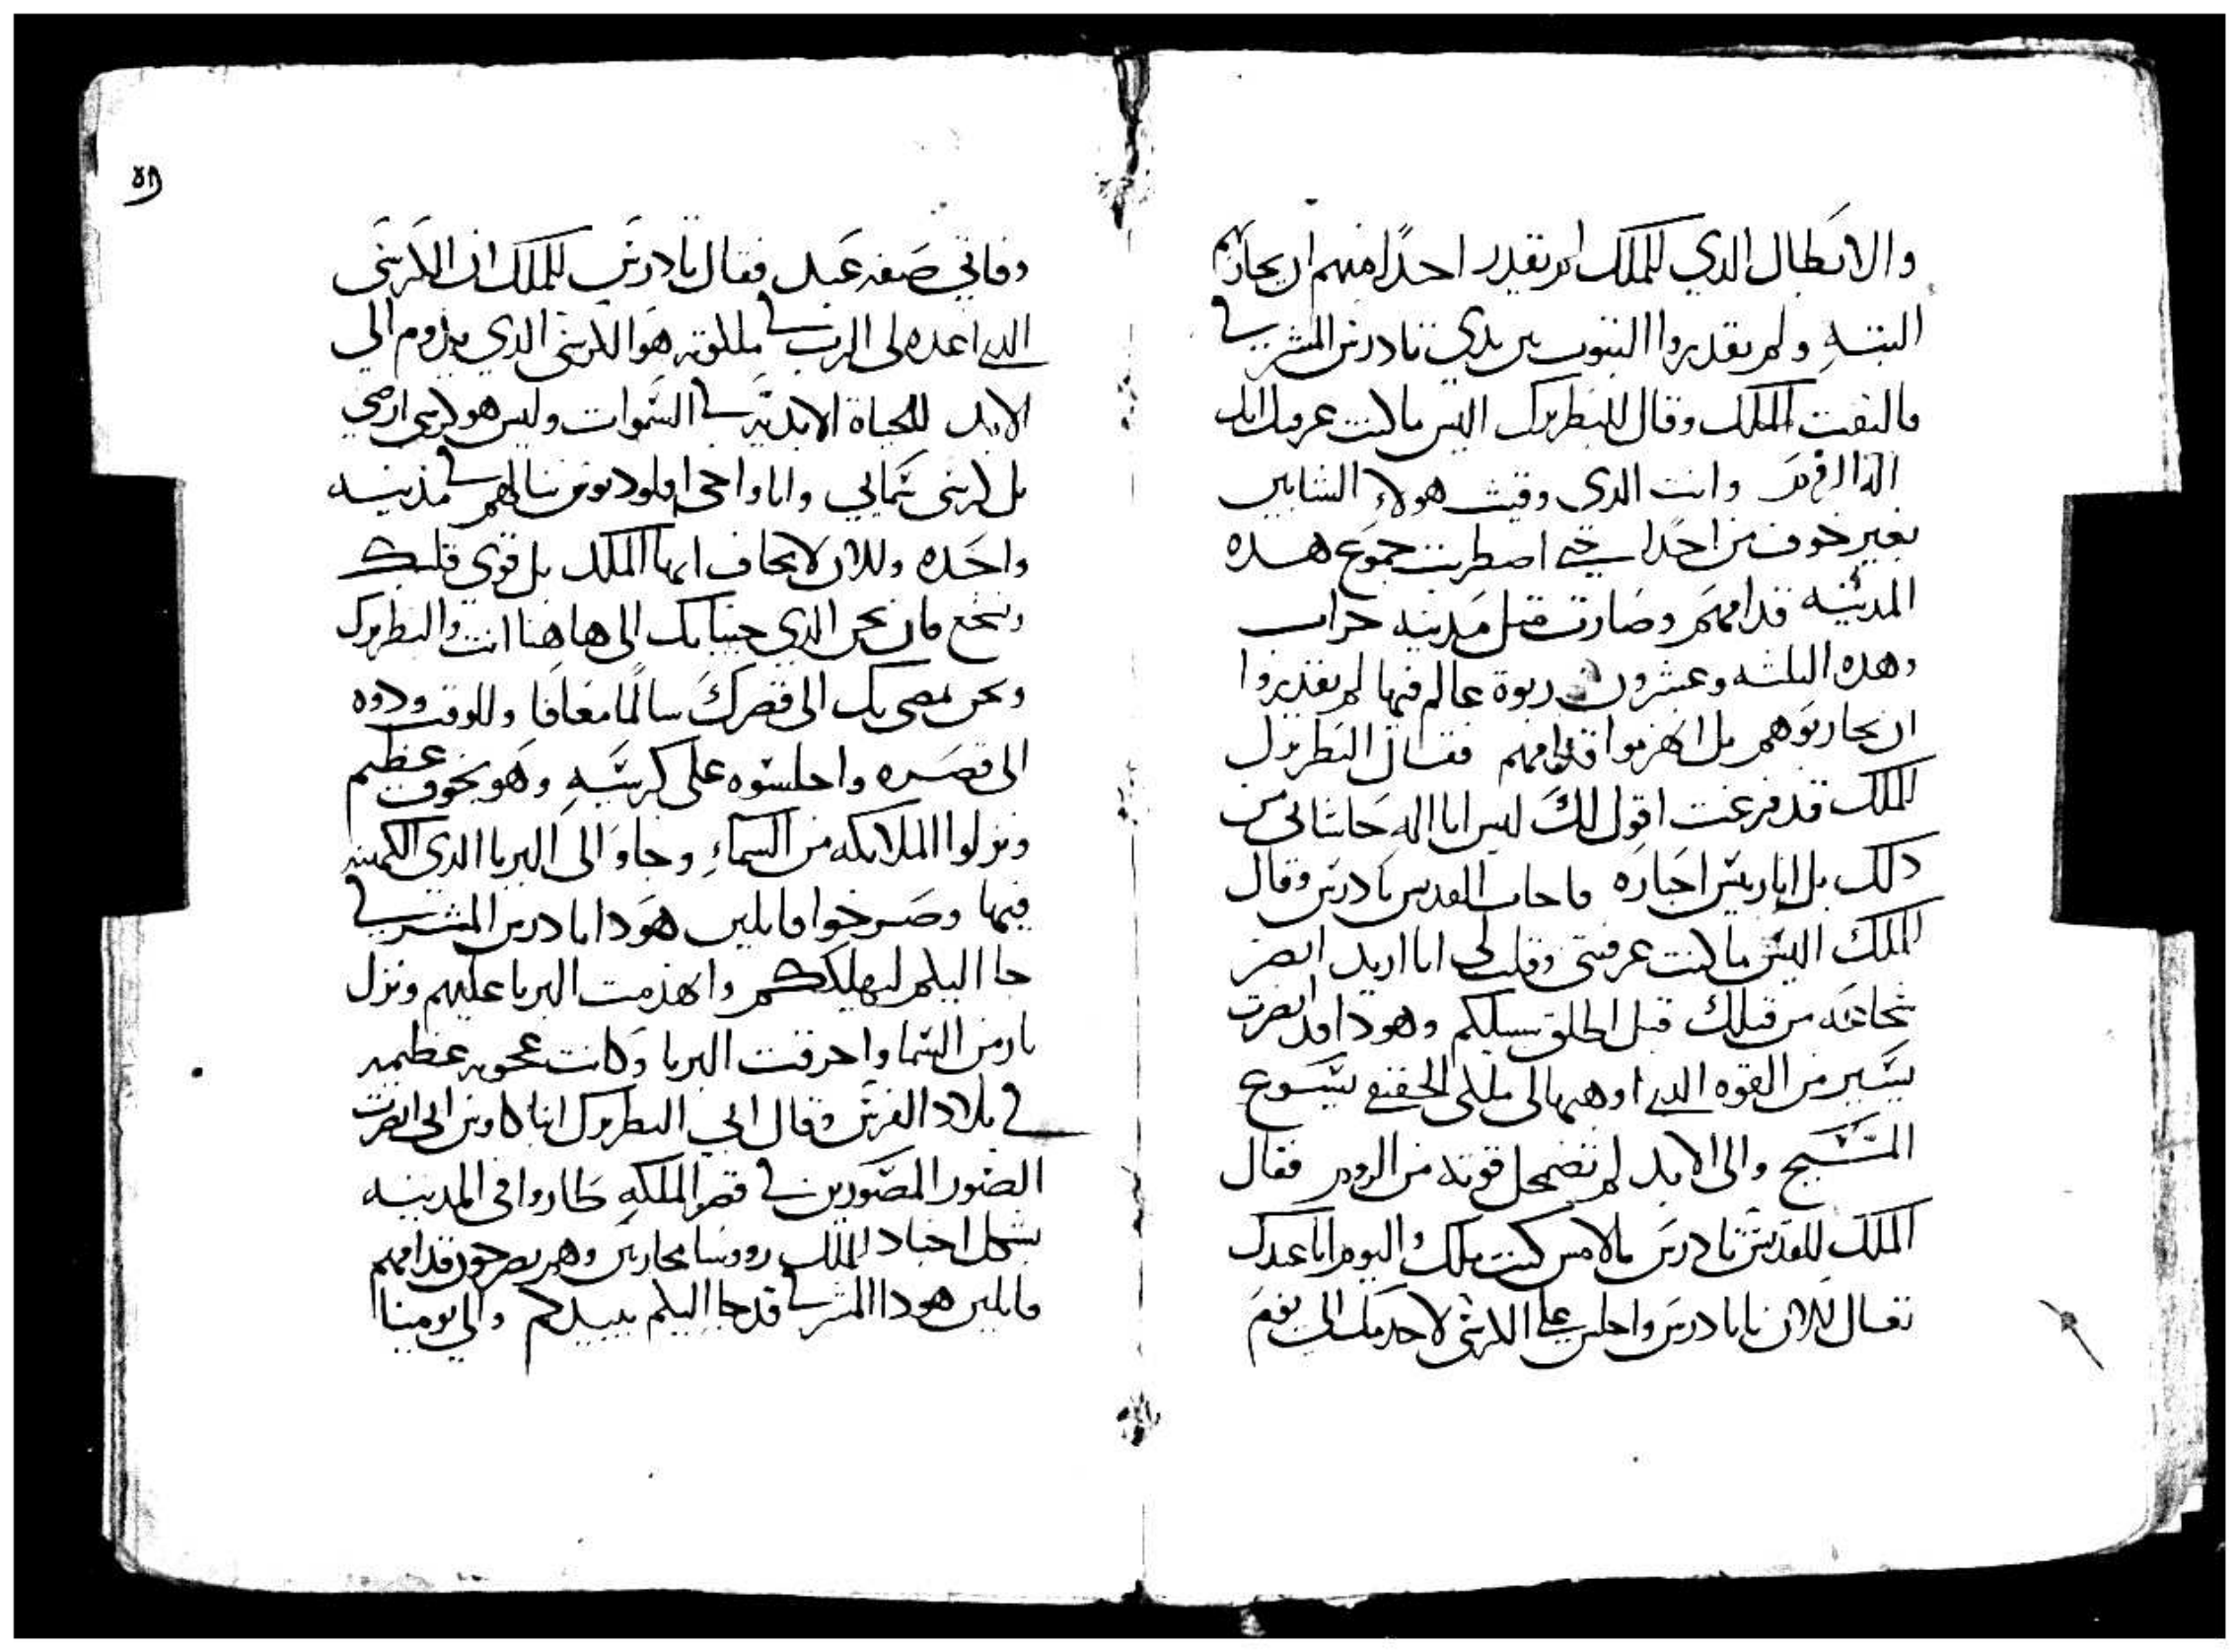 والابطال الذي للملك لم تقدر احدًا منهم ان يحاربهم
البتة ولم يقدروا الثبوت بين يدي تادرس المشرقي
فالتفت الملك وقال للبطريرك اليس ما كنت عرفتك انك
وانت الذي وقيت هولاء الشابين
بغير خوف من احدًا حتى اضطربت جموع هذه
المدينة قدامهم وصارت مثل مدينه خراب
وهذه الثلثه وعشرون ربوة عالم فيها لم يقدروا
ان يحاربوهم بل انهزموا قدامهم فقال البطريرك
للملك قد فرغت اقول لك ليس انا اله حاشاني من
ذلك بل انا رييس احباره فاجاب القديس تادرس وقال
للملك اليس ما كنت عرفتني وقلت لي انا اريد ابصر
شجاعته من قبلك قبل اطلق سبيلكم وهوذا قد ابصرت
يسير من القوه الذي اوهبها لي ملكي الحقيقي يسوع
المسيح والى الابد لم تضمحل قوته من الروم فقال
الملك للقديس تادرس بالامس كنت ملك واليوم انا عبدك
تعال الان يا تادرس واجلس على الكرسي لاخدمك اني بفم
٤٩
وفاتي صفة عبد فقال تادرس للملك ان الكرسي
الذي اعده لي الرب في ملكوته هو الكرسي الذي يدوم الي
الابد للحياة الابدية في السموات وليس هو كرسي ارضي
بل كرسي سمايي وانا واخي اقلوديوس سالهم في مدينه
واحده والان لا تخاف ايها الملك بل قوي قلبك
وتشجع فان نحن الذي جينا بك الى هاهنا انت والبطريرك
ونحن نمضي بك الى قصرك سالمًا معافا وللوقت ودوه
الى قصره واجلسوه على كرسيه وهو بخوف عظيم
ونزلوا الملايكه من السماء وجاو الى البربا الذي الكهنه
فيها وصرخوا قايلين هوذا تادرس المشرقي
جا اليكم ليهلككم وانهدمت البربا عليهم ونزل
نار من السما واحرقت البربا وكانت عجوبه عظيمه
في بلاد الفرس وقال ابي البطريرك انبا كاوس اني ابصرت
الصور المصورين في قصر الملكه طاروا في المدينه
بشكل اجناد الملك روسا محاربين وهم يصرخون قدامهم
قايلين هوذا المشرقي قد جا اليكم يبيدكم والى يومنا